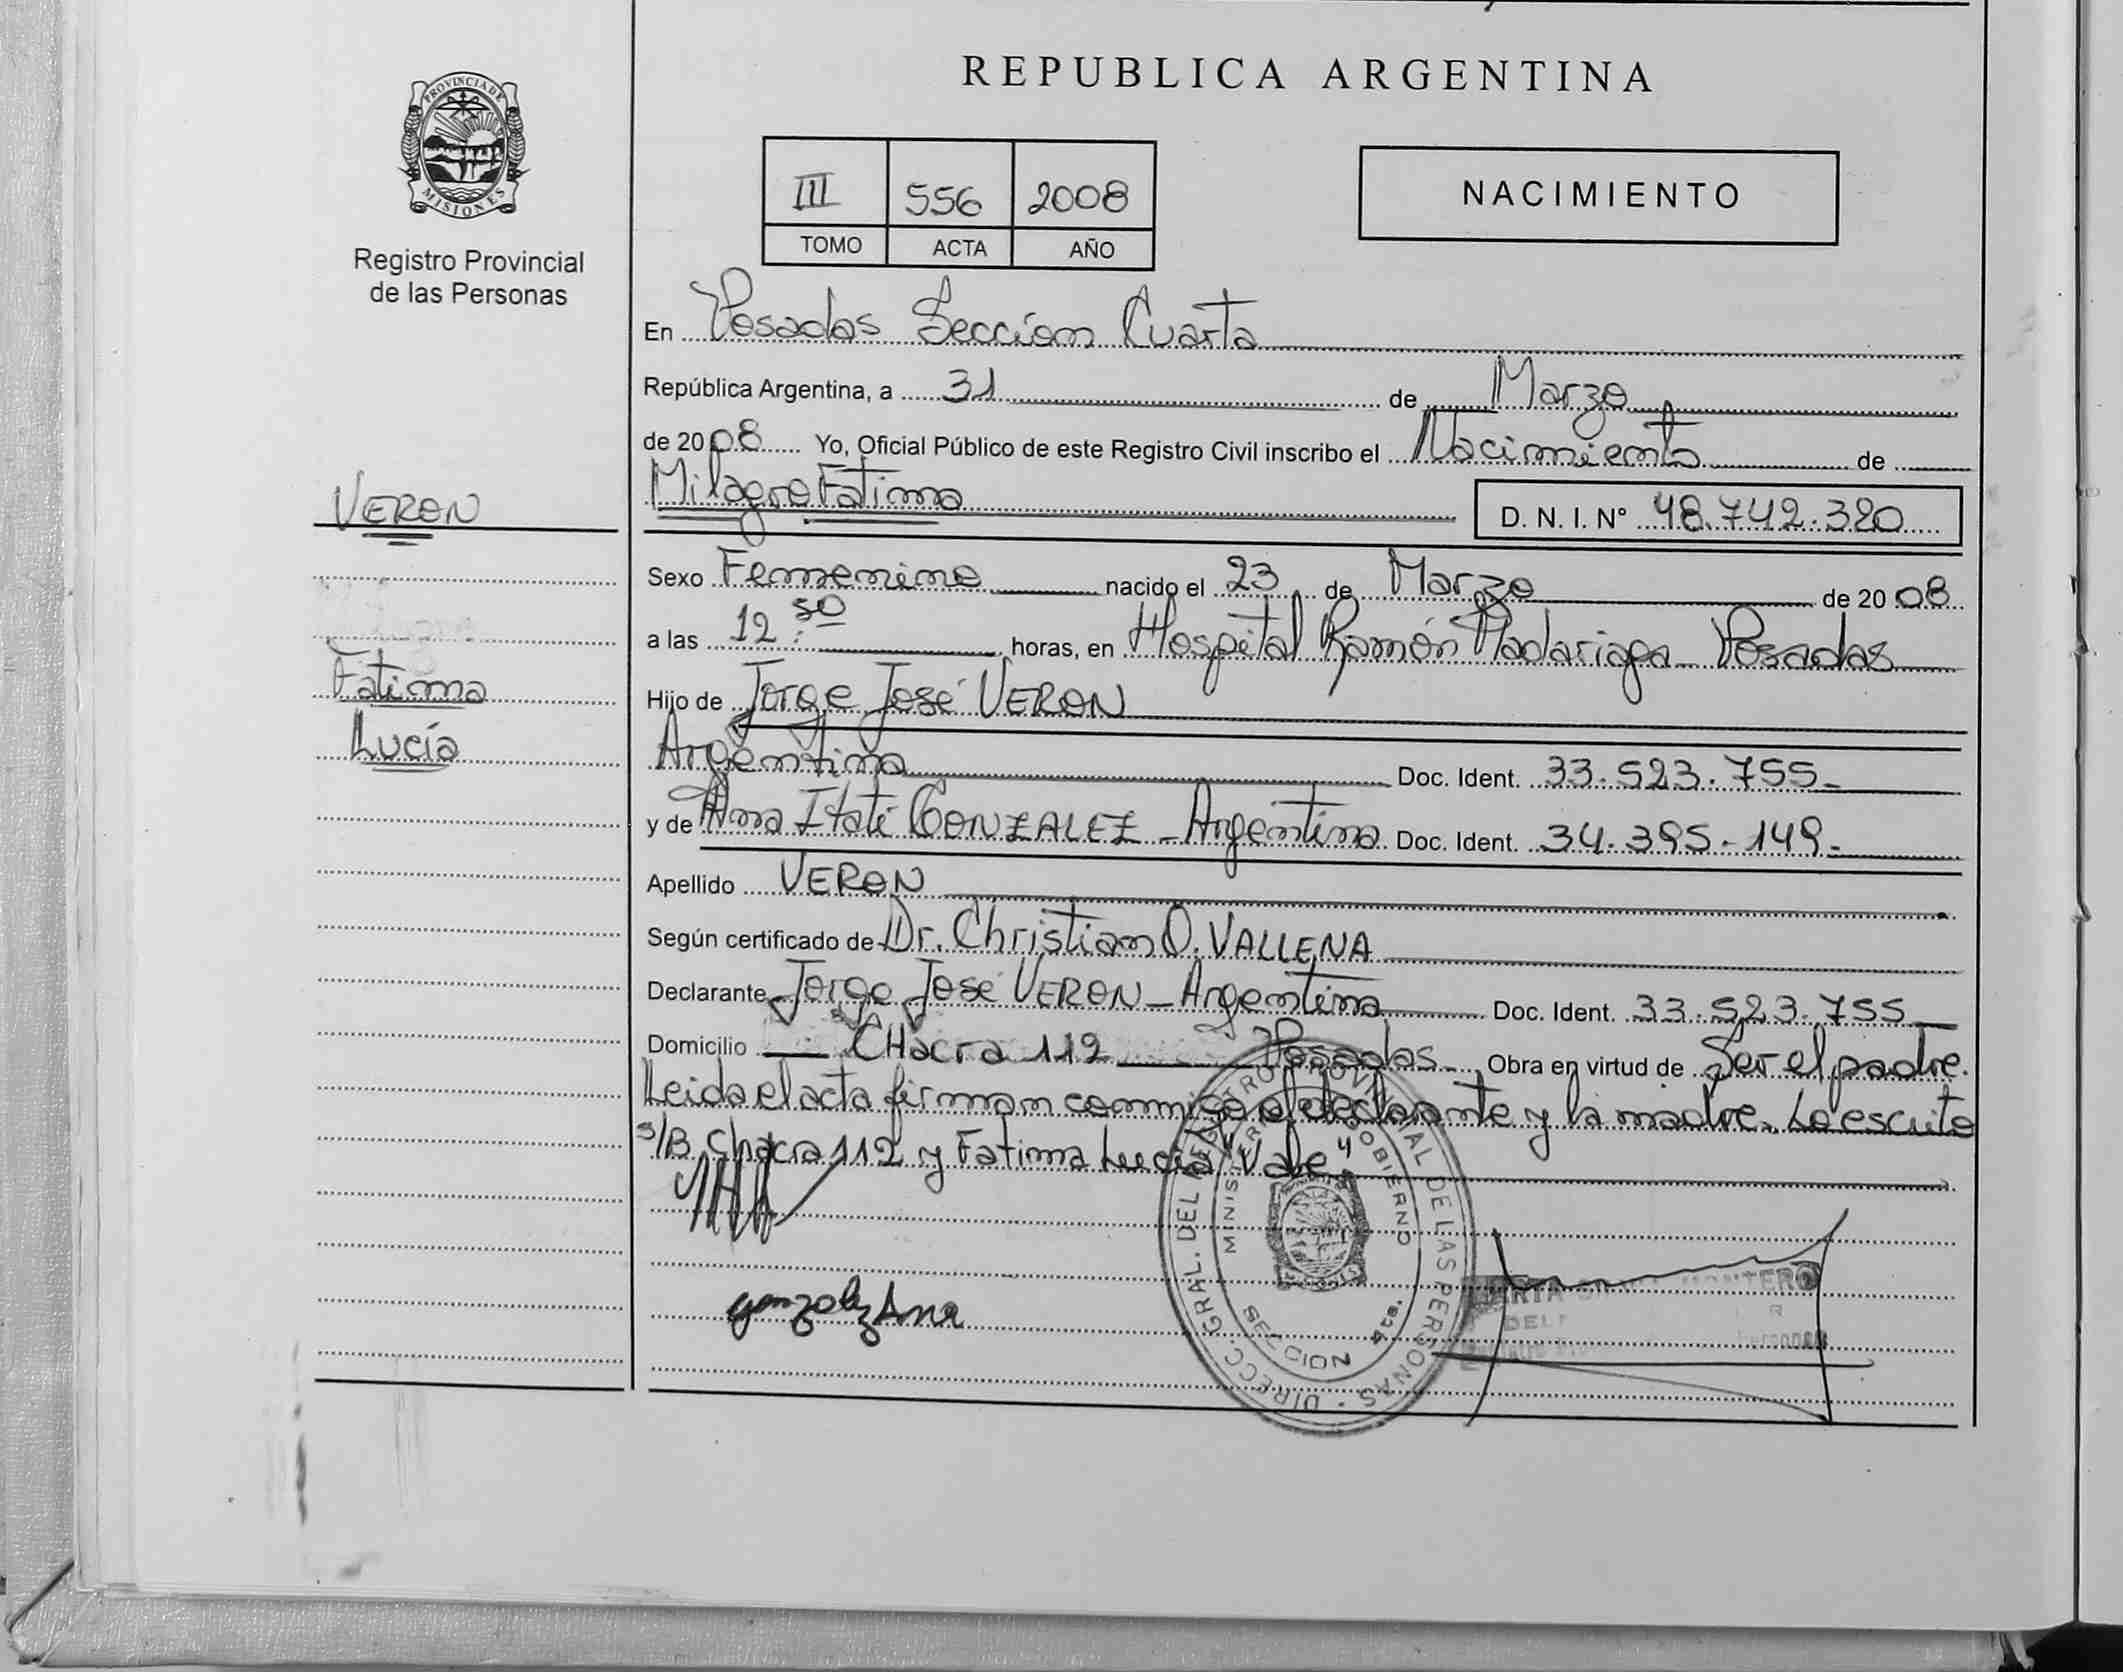 PROVINCIA DE
MISIONES
Registro Provincial
de las Personas
VERON
Fatima
Lucía
REPUBLICA ARGENTINA
III 556 2008
TOMO ACTA AÑO
NACIMIENTO
En Posadas Sección Cuarta
República Argentina, a 31 de Marzo
de 2008 Yo, Oficial Público de este Registro Civil inscribo el Nacimiento de
Milagro Fatima D. N. I. N° 48.742.320
Sexo Femenino nacido el 23 de Marzo de 2008
a las 12:50 horas, en Hospital Ramón Madariaga Posadas
Hijo de Jorge José VERON
Argentina Doc. Ident. 33.523.755-
y de Ana Itatí GONZALEZ - Argentina Doc. Ident. 34.395-149-
Apellido VERON
Según certificado de Dr. Christian O. VALLENA
Declarante Jorge José VERON - Argentina Doc. Ident. 33.523.755
Domicilio Chacra 112 Posadas Obra en virtud de Ser el padre.
Leida el acta firman conmigo el declarante y la madre. Lo escrito
s/B. Chacra 112 y Fatima Lucía "Vale"
gonzalez Ana
DIRECC. GRAL. DEL REGISTRO PROVINCIAL DE LAS PERSONAS
MINISTERIO GOBIERNO
SECCION 4ta.
MONTERO